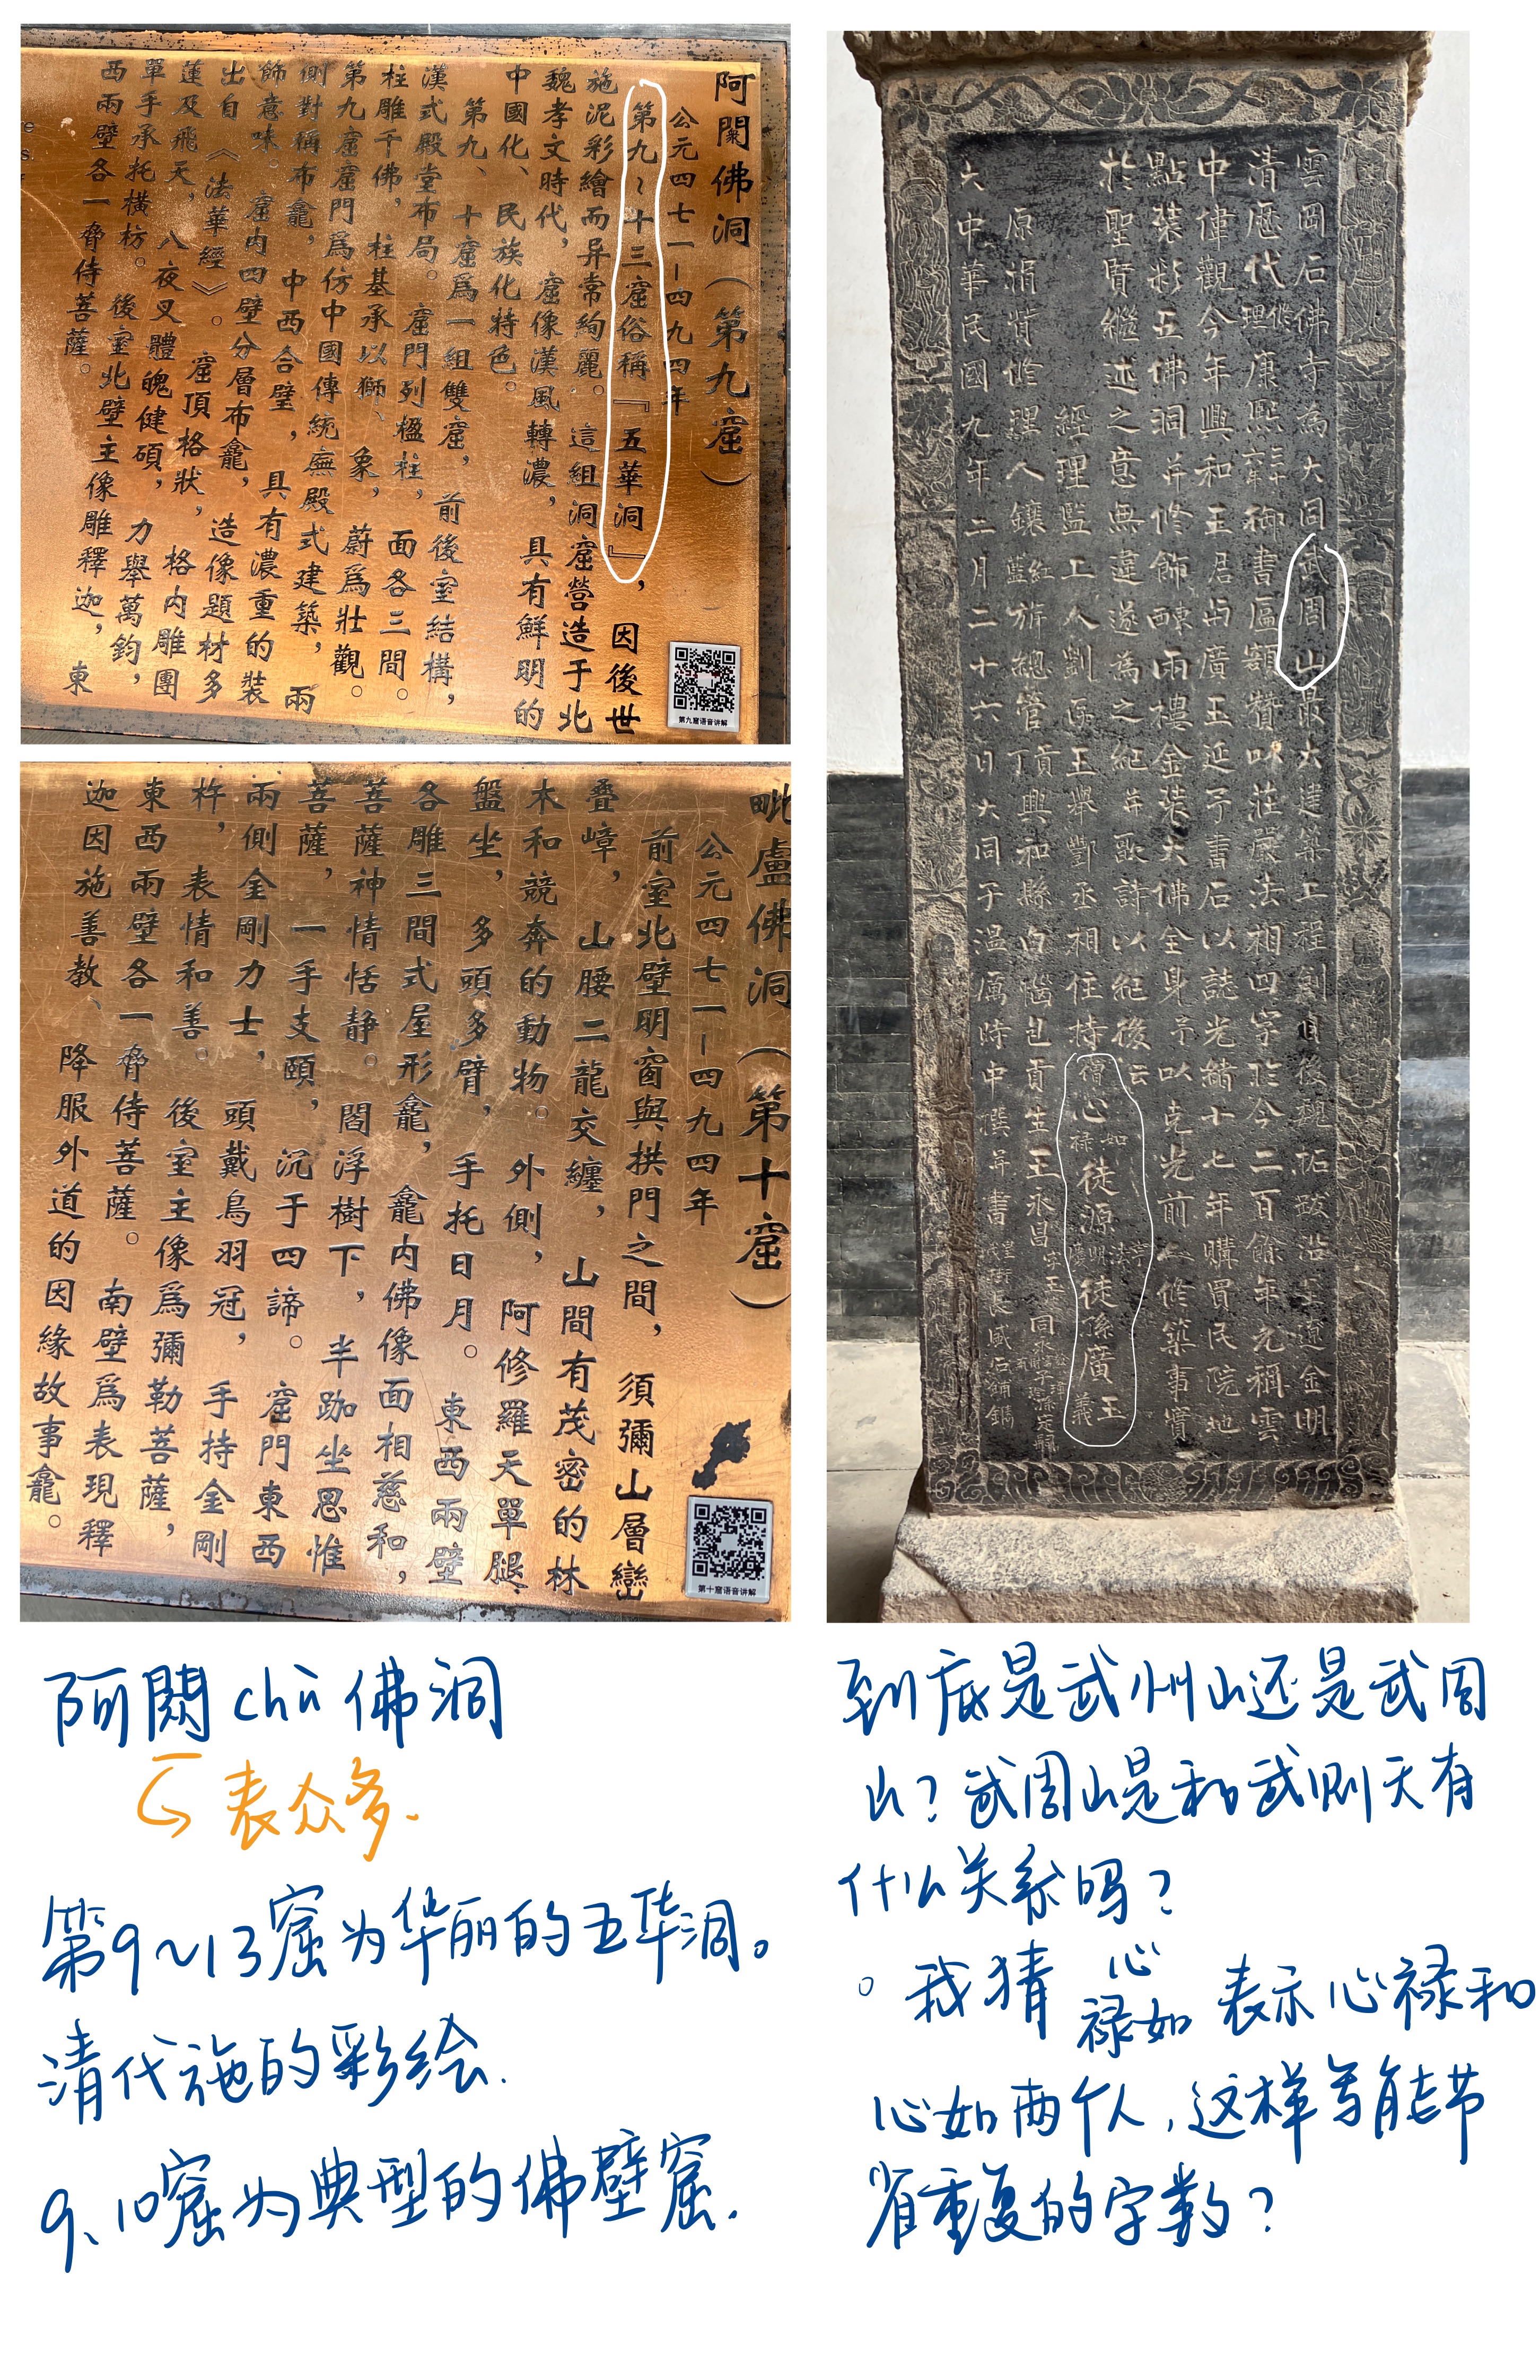 阿閦佛洞（第九窟）
公元四七一－四九四年
第九～十三窟俗稱『五華洞』，因後世
施泥彩繪而异常絢麗。這組洞窟營造于北
魏孝文時代，窟像漢風轉濃，具有鮮明的
中國化、民族化特色。
第九、十窟爲一組雙窟，前後室結構，
漢式殿堂布局。窟門列楹柱，面各三間。
柱雕千佛，柱基承以獅、象，蔚爲壯觀。
第九窟窟門爲仿中國傳統廡殿式建築，兩
側對稱布龕，中西合壁，具有濃重的裝
飾意味。窟内四壁分層布龕，造像題材多
出自《法華經》。窟頂格狀，格内雕團
蓮及飛天，八夜叉體魄健碩，力舉萬鈞，
單手承托橫枋。後室北壁主像雕釋迦，東
西兩壁各一脅侍菩薩。
第九窟语音讲解
毗盧佛洞（第十窟）
公元四七一－四九四年
前室北壁明窗與拱門之間，須彌山層巒
叠嶂，山腰二龍交纏，山間有茂密的林
木和競奔的動物。外側，阿修羅天單腿
盤坐，多頭多臂，手托日月。東西兩壁
各雕三間式屋形龕，龕内佛像面相慈和，
菩薩神情恬静。閻浮樹下，半跏坐思惟
菩薩，一手支頤，沉于四諦。窟門東西
兩側金剛力士，頭戴鳥羽冠，手持金剛
杵，表情和善。後室主像爲彌勒菩薩，
東西兩壁各一脅侍菩薩。南壁爲表現釋
迦因施善教、降服外道的因緣故事龕。
第十窟语音讲解
雲岡石佛寺為大同武周山最大建築工程創自後魏拓跋沿至遼金明
清歷代興修康熙三十六年御書匾額贊以莊嚴法相四字距今二百餘年元稱雲
中偉觀今年興和王君占廣玉延予書石以誌光緒十七年購買民院地
點裝彩五佛洞并修飾兩樓金裝大佛全身予以克光前人修築事實
於聖賢繼述之意無違遂為之紀并歌詩以紀後云
經理監工人劉 王舉鄷丞相住持禪心如禄徒源徒孫廣玉義
原 理人鑲紅藍旂總管貢丁興和縣 貢生王永昌
大中華民國九年二月二十六日大同子溫厲時中撰并書
阿閦chù佛洞
表众多.
第9～13窟为华丽的五华洞。
清代施的彩绘.
9、10窟为典型的佛壁窟.
到底是武州山还是武周
山？武周山是和武则天有
什么关系吗？
。我猜 心
禄如 表示心禄和
心如两个人，这样写能节
省重复的字数？